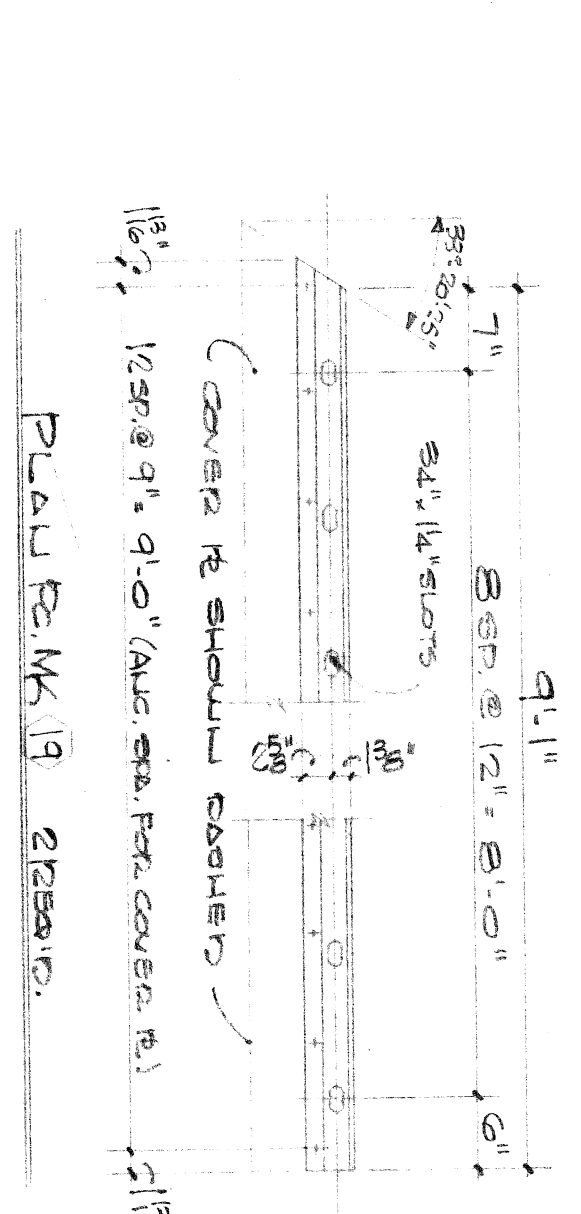 9'-1"
7"
8 SP. @ 12" = 8'-0"
6"
33°20'25"
3/4" x 1 1/4" SLOTS
2 5/8"
1 3/8"
COVER PL SHOWN DASHED
1 13/16"
12 SP. @ 9" = 9'-0" (ANC. SPA. FOR COVER PL.)
PLAN PC. MK 19